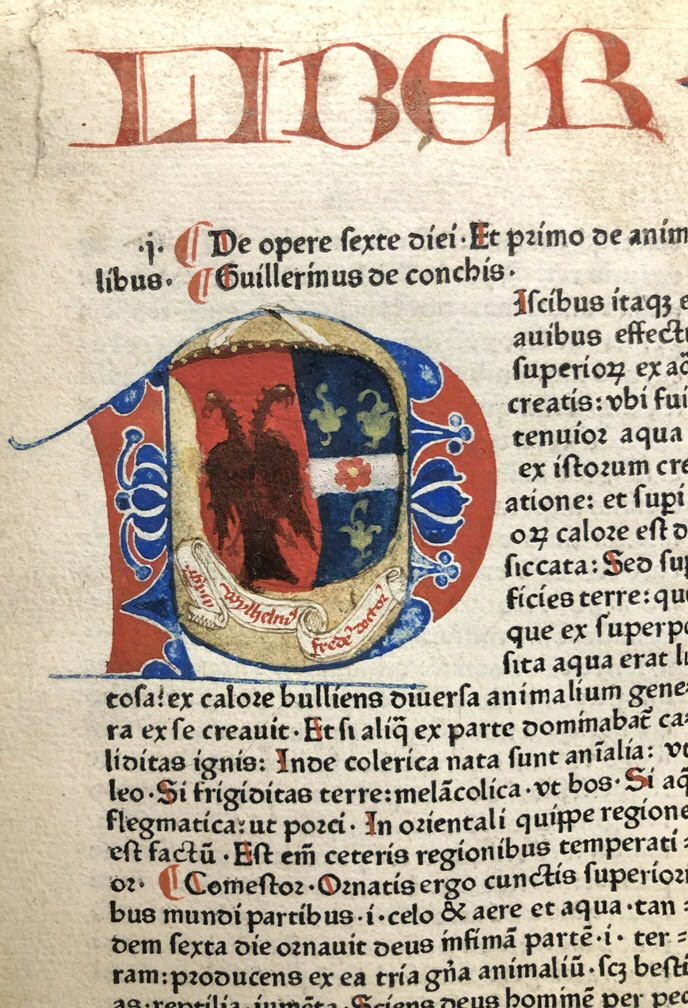 LIBER
·j· De opere ſexte diei·Et primo de anim
libus· Guillerinus de conchis·
Iſcibus itaqꝫ e
auibus effectu
ſuperioꝝ ex aq̄
creatis: vbi fui
tenuior aqua
ex iſtorum cre
atione: et ſupi
orꝝ calore eſt d
ſiccata: Sed ſup
ficies terre: que
que ex ſuperpo
ſita aqua erat li
wylhelm᷒
frede᷒ doctor᷒
toſa: ex calore bulliens diuerſa animalium gene
ra ex ſe creauit·Et ſi aliq̄ ex parte dominabat̄ ca
liditas ignis: Inde colerica nata ſunt aīalia: vt
leo·Si frigiditas terre: melācolica·vt bos·Si aq
flegmatica: ut porci· In orientali quippe regione
eſt factū·Eſt em̄ ceteris regionibus temperati
or· Comeſtor·Ornatis ergo cunctis ſuperiori
bus mundi partibus·i·celo & aere et aqua·tan
dem ſexta die ornauit deus infimā partē·i· ter
ram: producens ex ea tria gn̄a animaliū·ſcꝫ beſti
as·reptilia·iumēta·Sciens deus hominē per pec